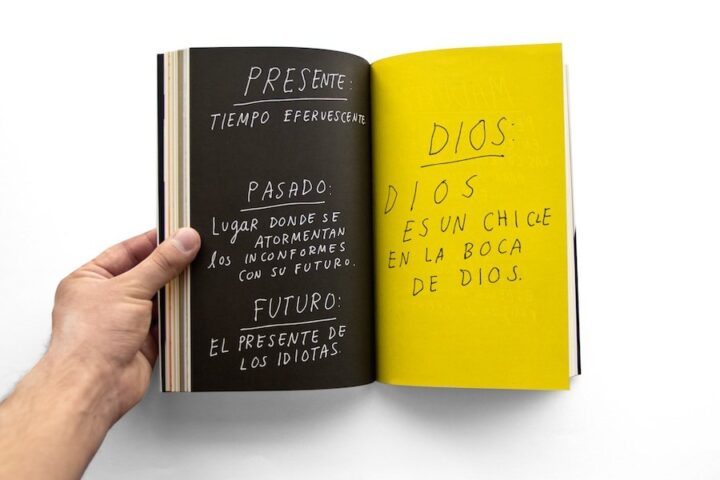 PRESENTE:
TIEMPO EFERVESCENTE
PASADO:
LUGAR DONDE SE
ATORMENTAN
LOS INCONFORMES
CON SU FUTURO.
FUTURO:
EL PRESENTE DE
LOS IDIOTAS.
DIOS:
DIOS
ES UN CHICLE
EN LA BOCA
DE DIOS.